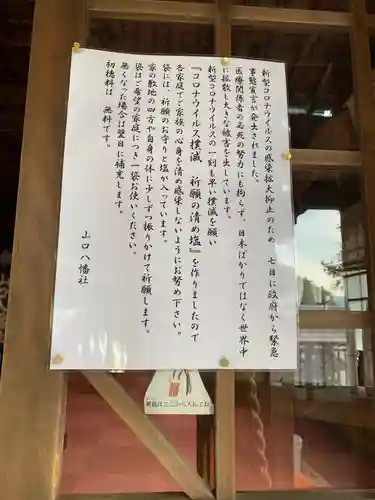 新型コロナウイルスの感染拡大抑止のため 七日に政府から緊急
事態宣言が発出されました。
医療関係者の必死の努力にも拘らず、日本ばかりではなく世界中
に拡散し大きな被害を出しています。
新型コロナウイルスの一刻も早い撲滅を願い
『コロナウイルス撲滅 祈願の清め塩』を作りましたので
各家庭でご家族の心身を清め感染しないようにお努め下さい。
袋には、祈願のお守りと塩が入っています。
家の敷地の四方や自身の体に少しずつ振りかけて祈願します。
袋はご希望の家庭につき一袋お使いください。
無くなった場合は翌日に補充します。
初穂料は 無料です。
山口八幡社
から入れて